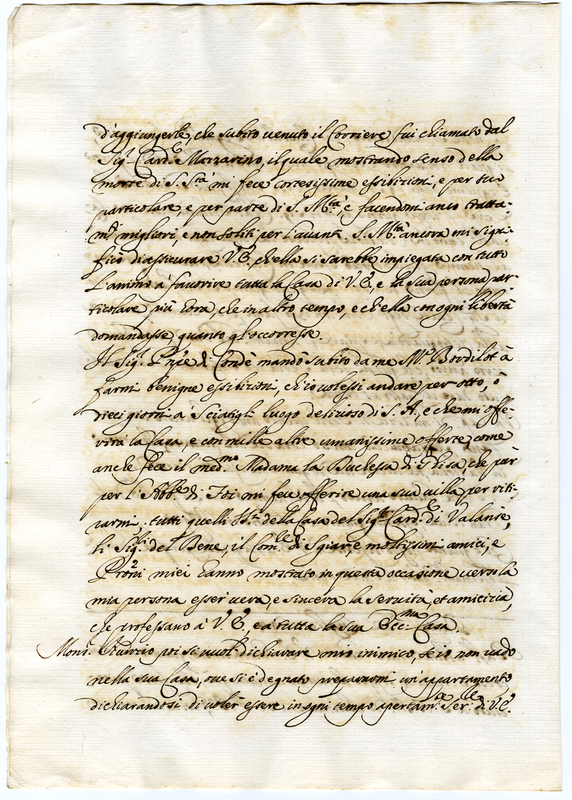 d'aggiungerle, che subito venuto il Corriere fui chiamato dal
Sig.r Card.e Mazzarino, il quale mostrando senso della
morte di S. S.tà mi fece cortesissime essibizioni, e per suo
particolare, e per parte di S. M.tà, e facendomi anco tratta-
m.ti migliori, e non soliti per l'avanti. S. M.tà ancora mi signi-
ficò di assicurare V. E., ch'ella si sarebbe impiegata con tutto
l'animo à favorire tutta la Casa di V. E., e la sua persona par-
ticolare più hora, che in altro tempo, e ch'ella con ogni libertà
domandasse quanto gl'occorresse.
Il Sig.r Pn̄pe di Condè mandò subito da me M.r Bordilot à
farmi benigne essibizioni, ch'io volessi andare per otto, ò
dieci giorni à Sciatigli luogo delizioso di S. A., e che mi offe-
riva la Casa, e con mille altre umanissime offerte, come
anche fece il med.mo Madama la Duchessa di Ghisa, che poi
per l'Abb.e di Foi mi fece offerire una sua villa per riti-
rarmi, tutti quelli SS.ri della Casa del Sig.r Card. di Valanse,
li Sig.ri del Bene, il Com.re di Sgiar, e moltissimi amici, e
Pro͞ni miei hanno mostrato in questa occasione verso la
mia persona esser vera, e sincera la servitù, et amicizia,
che professano à V. E., e à tutta la sua Ecc.ma Casa.
Mons. poi si vuol dichiarare mio inimico, se io non vado
nella sua Casa, ove si è degnato prepararmi un'appartamento
dichiarandosi di voler essere in ogni tempo apertam.te Ser.re di V. E.